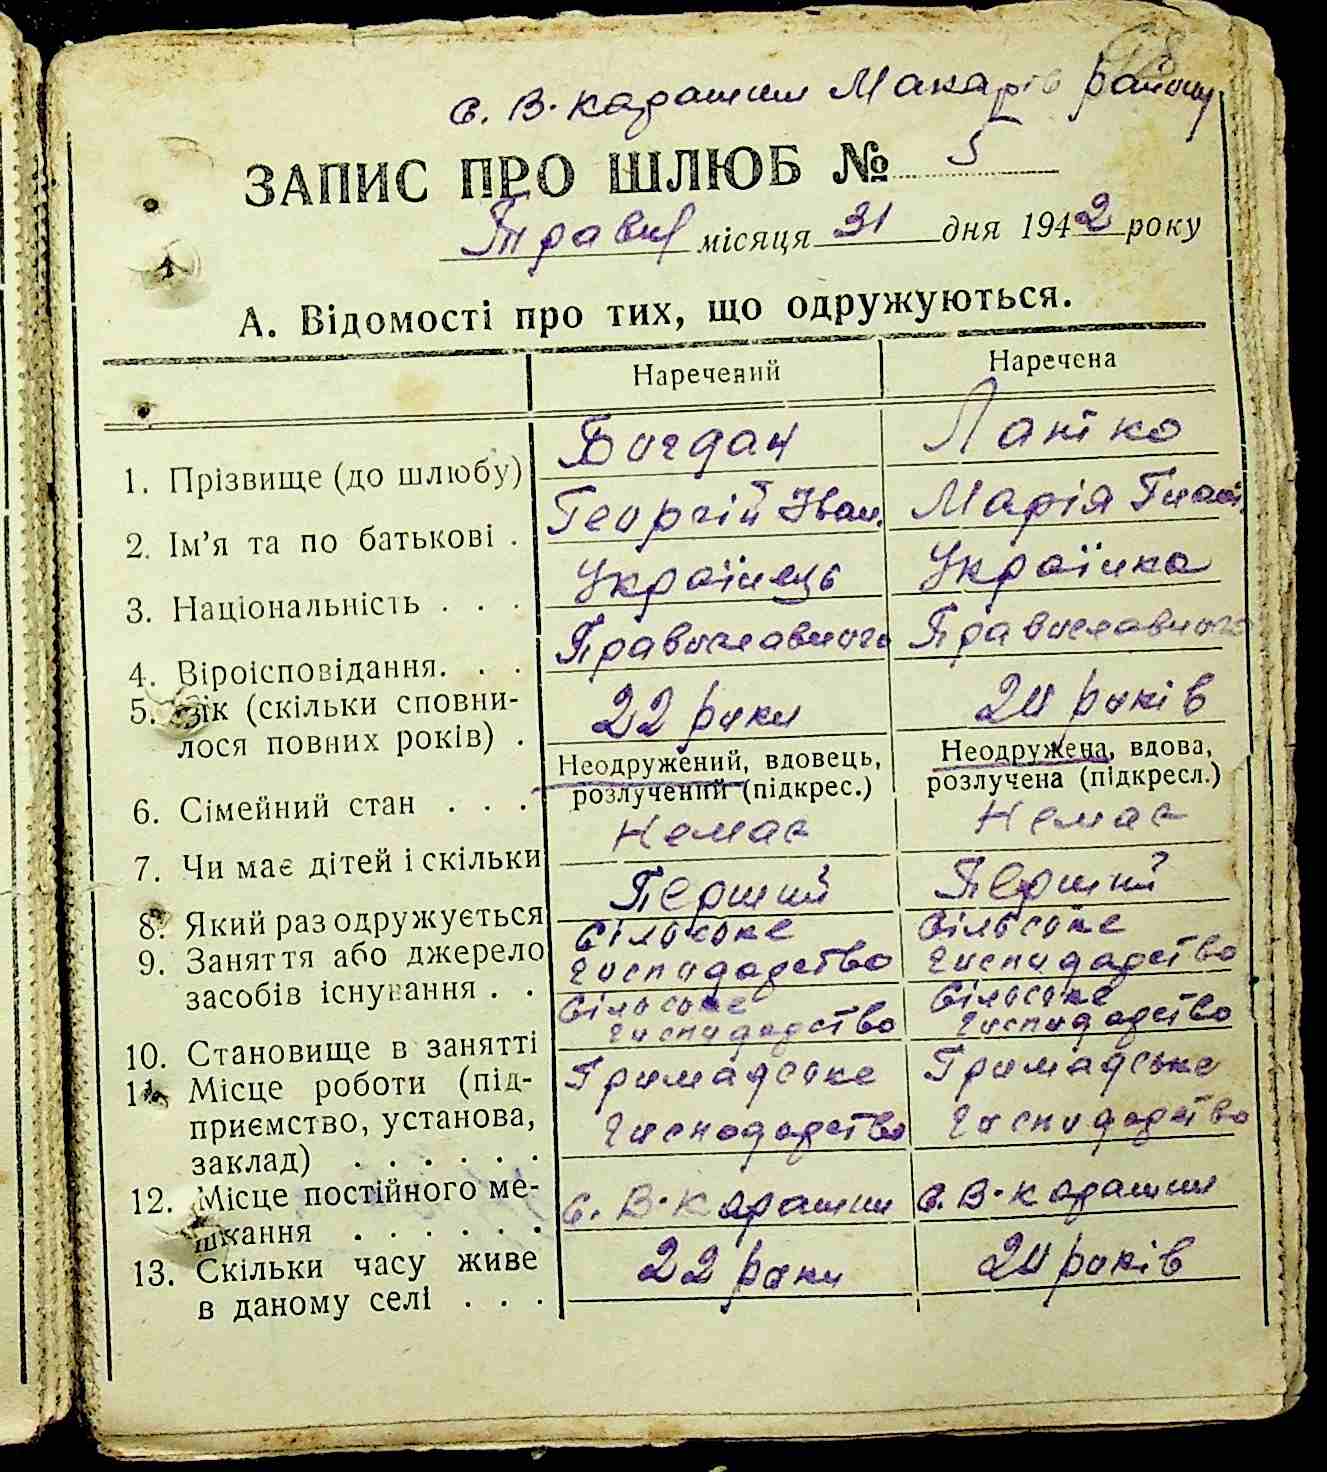 с. В-карашин Макарів району
ЗАПИС ПРО ШЛЮБ № 5
Травня місяця 31 дня 1942 року
А. Відомості про тих, що одружуються.
Наречений Наречена
1. Прізвище (до шлюбу) Богдан Лапко
2. Ім'я та по батькові . Георгій Іван. Марія
3. Національність . . . Українець Українка
4. Віроісповідання. . . Православного Православного
5. Вік (скільки сповни-
лося повних років) . 22 роки 20 років
Неодружений, вдовець, Неодружена, вдова,
6. Сімейний стан . . . розлучений (підкрес.) розлучена (підкресл.)
7. Чи має дітей і скільки Немає Немає
8. Який раз одружується Перший Перший
9. Заняття або джерело Сільське Сільське
засобів існування . . господарство господарство
Сільське Сільське
10. Становище в занятті господарство господарство
11. Місце роботи (під- Громадське Громадське
приємство, установа, господарство господарство
заклад) . . . . . .
12. Місце постійного ме- с. В-Карашин с. В-карашин
шкання . . . . . .
13. Скільки часу живе 22 роки 20 років
в даному селі . . .